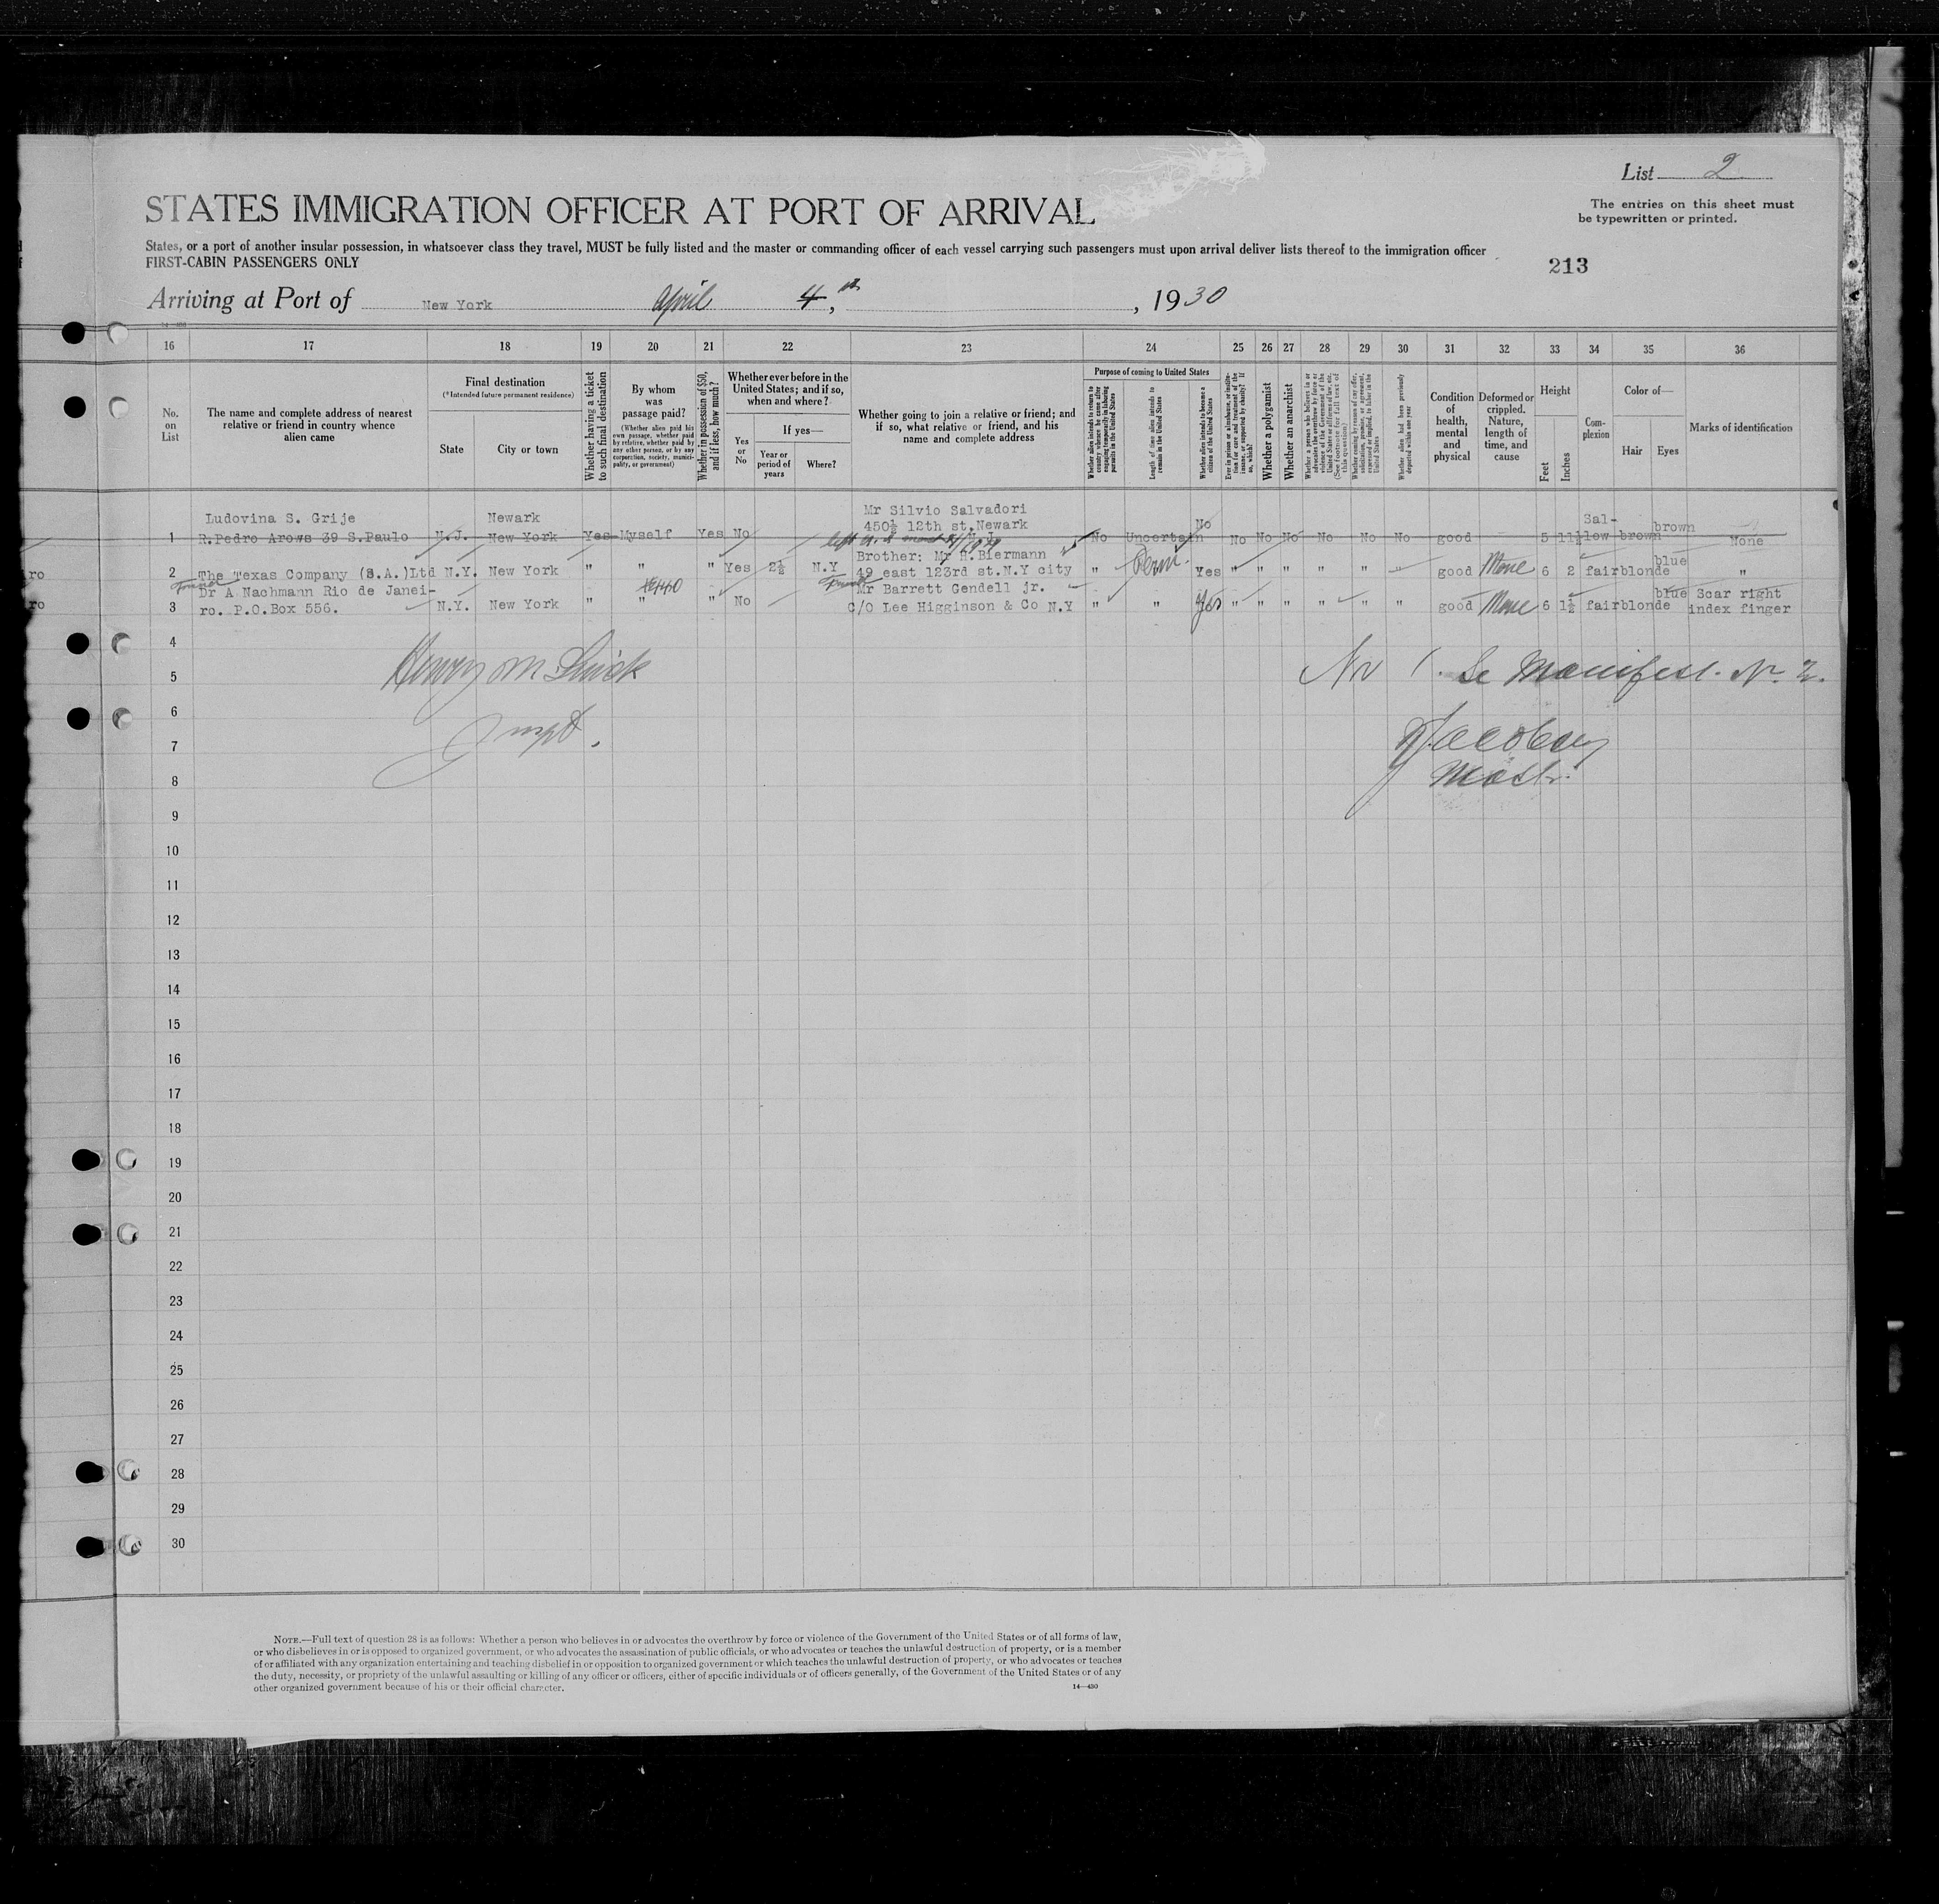 List 2
STATES IMMIGRATION OFFICER AT PORT OF ARRIVAL
The entries on this sheet must
be typewritten or printed.
States, or a port of another insular possession, in whatsoever class they travel, MUST be fully listed and the master or commanding officer of each vessel carrying such passengers must upon arrival deliver lists thereof to the immigration officer
FIRST-CABIN PASSENGERS ONLY
213
Arriving at Port of New York April 4, th, 1930
16 17 18 19 20 21 22 23 24 25 26 27 28 29 30 31 32 33 34 35 36
No. on List
The name and complete address of nearest relative or friend in country whence alien came
Final destination
(*Intended future permanent residence)
State
City or town
Whether having a ticket to such final destination
By whom was passage paid?
(Whether alien paid his own passage, whether paid by relative, whether paid by any other person, or by any corporation, society, municipality, or government)
Whether in possession of $50, and if less, how much?
Whether ever before in the United States; and if so, when and where?
Yes or No
If yes—
Year or period of years
Where?
Whether going to join a relative or friend; and if so, what relative or friend, and his name and complete address
Purpose of coming to United States
Whether alien intends to return to country whence he came after engaging temporarily in laboring pursuits in the United States
Length of time alien intends to remain in the United States
Whether alien intends to become a citizen of the United States
Ever in prison or almshouse, or institution for care and treatment of the insane, or supported by charity? If so, which?
Whether a polygamist
Whether an anarchist
Whether a person who believes in or advocates the overthrow by force or violence of the Government of the United States or all forms of law, etc. (See footnote for full text of this question)
Whether coming by reason of any offer, solicitation, promise, or agreement, expressed or implied, to labor in the United States
Whether alien had been previously deported within one year
Condition of health, mental and physical
Deformed or crippled. Nature, length of time, and cause
Height
Feet
Inches
Complexion
Color of—
Hair
Eyes
Marks of identification
Ludovina S. Grije Newark Mr Silvio Salvadori
450½ 12th st.Newark No Sal- brown
1 R.Pedro Arows 39 S.Paulo N.J. New York Yes Myself Yes No N.J. No Uncertain No No No No No No good 5 11½ low brown None
Brother: Mr H.Biermann blue
2 The Texas Company (S.A.)Ltd N.Y. New York " " " Yes 2½ N.Y 49 east 123rd st.N.Y city " Perm. Yes " " " " " good None 6 2 fair blonde "
Dr A Nachmann Rio de Janei- Mr Barrett Gendell jr. blue Scar right
3 ro. P.O.Box 556. N.Y. New York " " " No C/O Lee Higginson & Co N.Y " " Yes " " " " " " good None 6 1½ fair blonde index finger
ro
ro
4
5 Nr 1. Manifest. Nr. 2.
6
7 Jacobey
8
9
10
11
12
13
14
15
16
17
18
19
20
21
22
23
24
25
26
27
28
29
30
NOTE.—Full text of question 28 is as follows: Whether a person who believes in or advocates the overthrow by force or violence of the Government of the United States or of all forms of law,
or who disbelieves in or is opposed to organized government, or who advocates the assassination of public officials, or who advocates or teaches the unlawful destruction of property, or is a member
of or affiliated with any organization entertaining and teaching disbelief in or opposition to organized government or which teaches the unlawful destruction of property, or who advocates or teaches
the duty, necessity, or propriety of the unlawful assaulting or killing of any officer or officers, either of specific individuals or of officers generally, of the Government of the United States or of any
other organized government because of his or their official character.
14—430